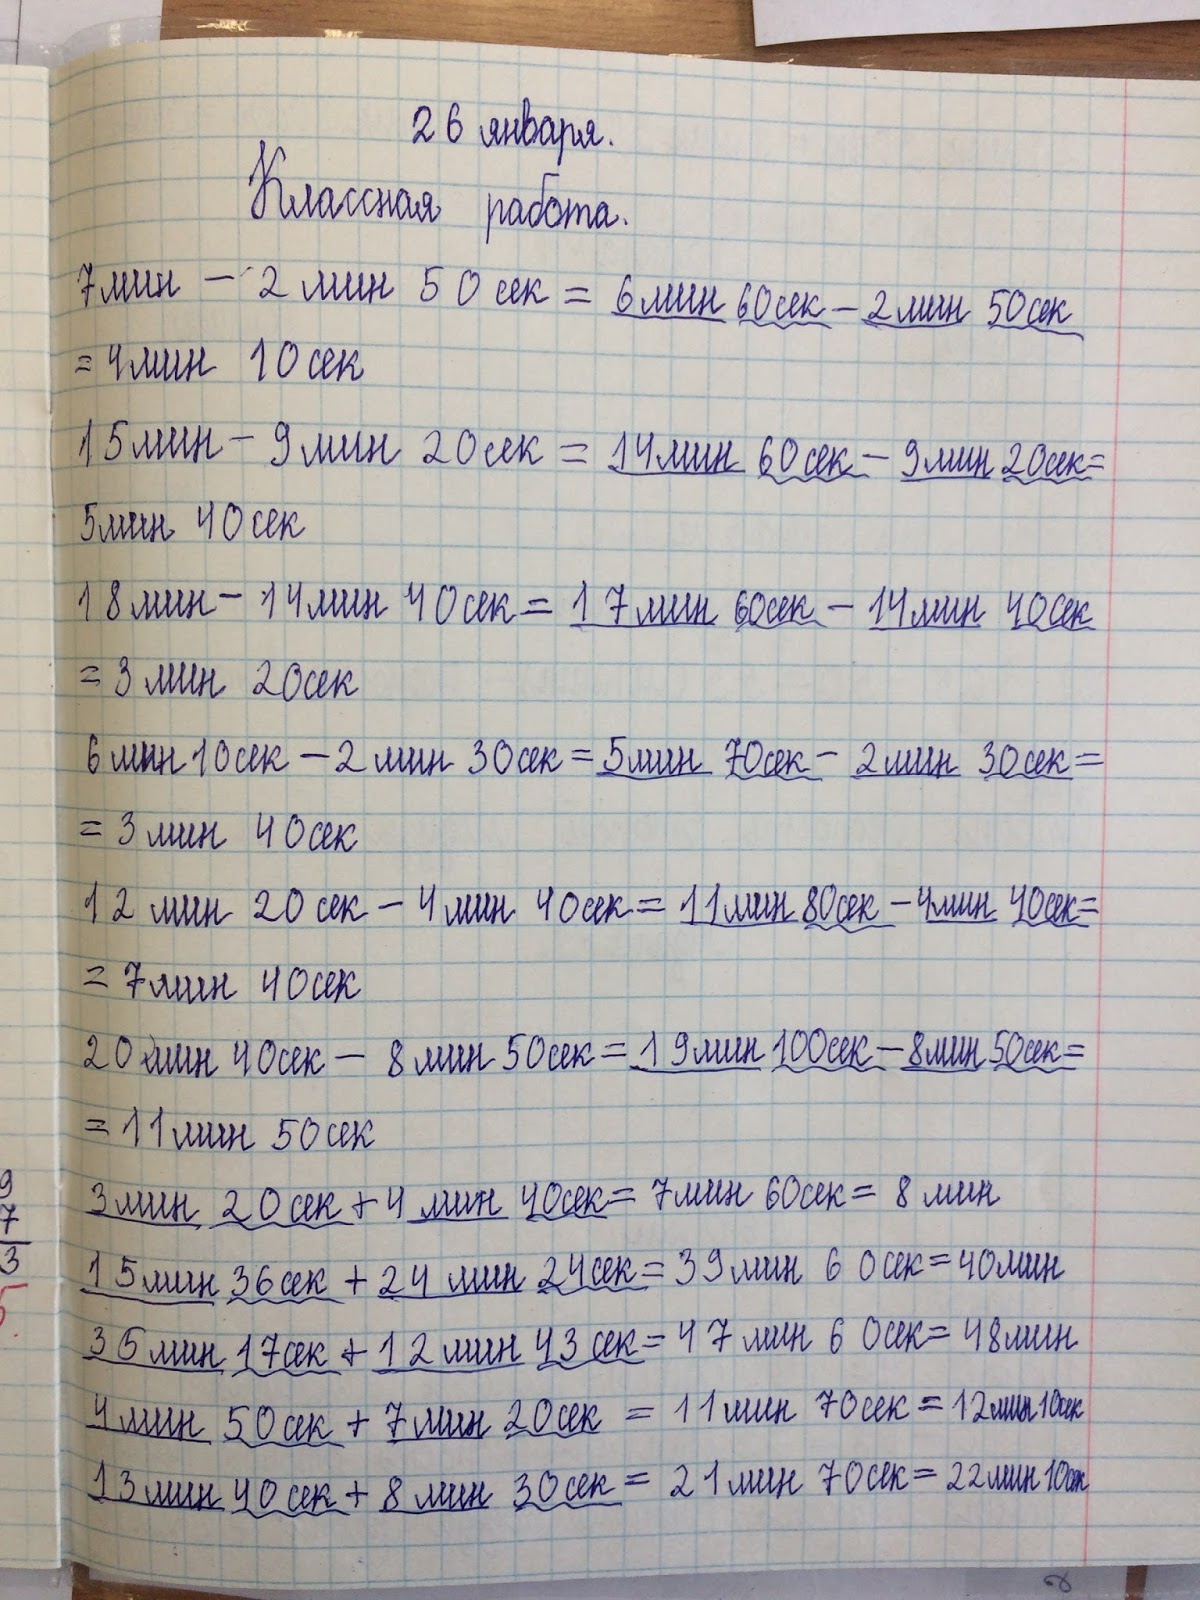 26 января.
Классная работа.
7мин - 2 мин 50сек = 6мин 60сек - 2мин 50сек
= 4мин 10сек
15мин - 9мин 20сек = 14мин 60сек - 9мин 20сек=
5мин 40сек
18мин - 14мин 40сек = 17мин 60сек - 14мин 40сек
= 3мин 20сек
6мин 10сек - 2мин 30сек = 5мин 70сек - 2мин 30сек =
= 3мин 40сек
12 мин 20сек - 4мин 40сек = 11мин 80сек - 4мин 40сек=
= 7мин 40сек
20мин 40сек - 8мин 50сек = 19мин 100сек - 8мин 50сек=
= 11мин 50сек
3мин 20сек + 4мин 40сек = 7мин 60сек = 8мин
15мин 36сек + 24мин 24сек = 39мин 60сек = 40мин
35мин 17сек + 12мин 43сек = 47мин 60сек = 48мин
4мин 50сек + 7мин 20сек = 11мин 70сек = 12мин 10сек
13мин 40сек + 8мин 30сек = 21мин 70сек = 22мин 10сек
9
7
3